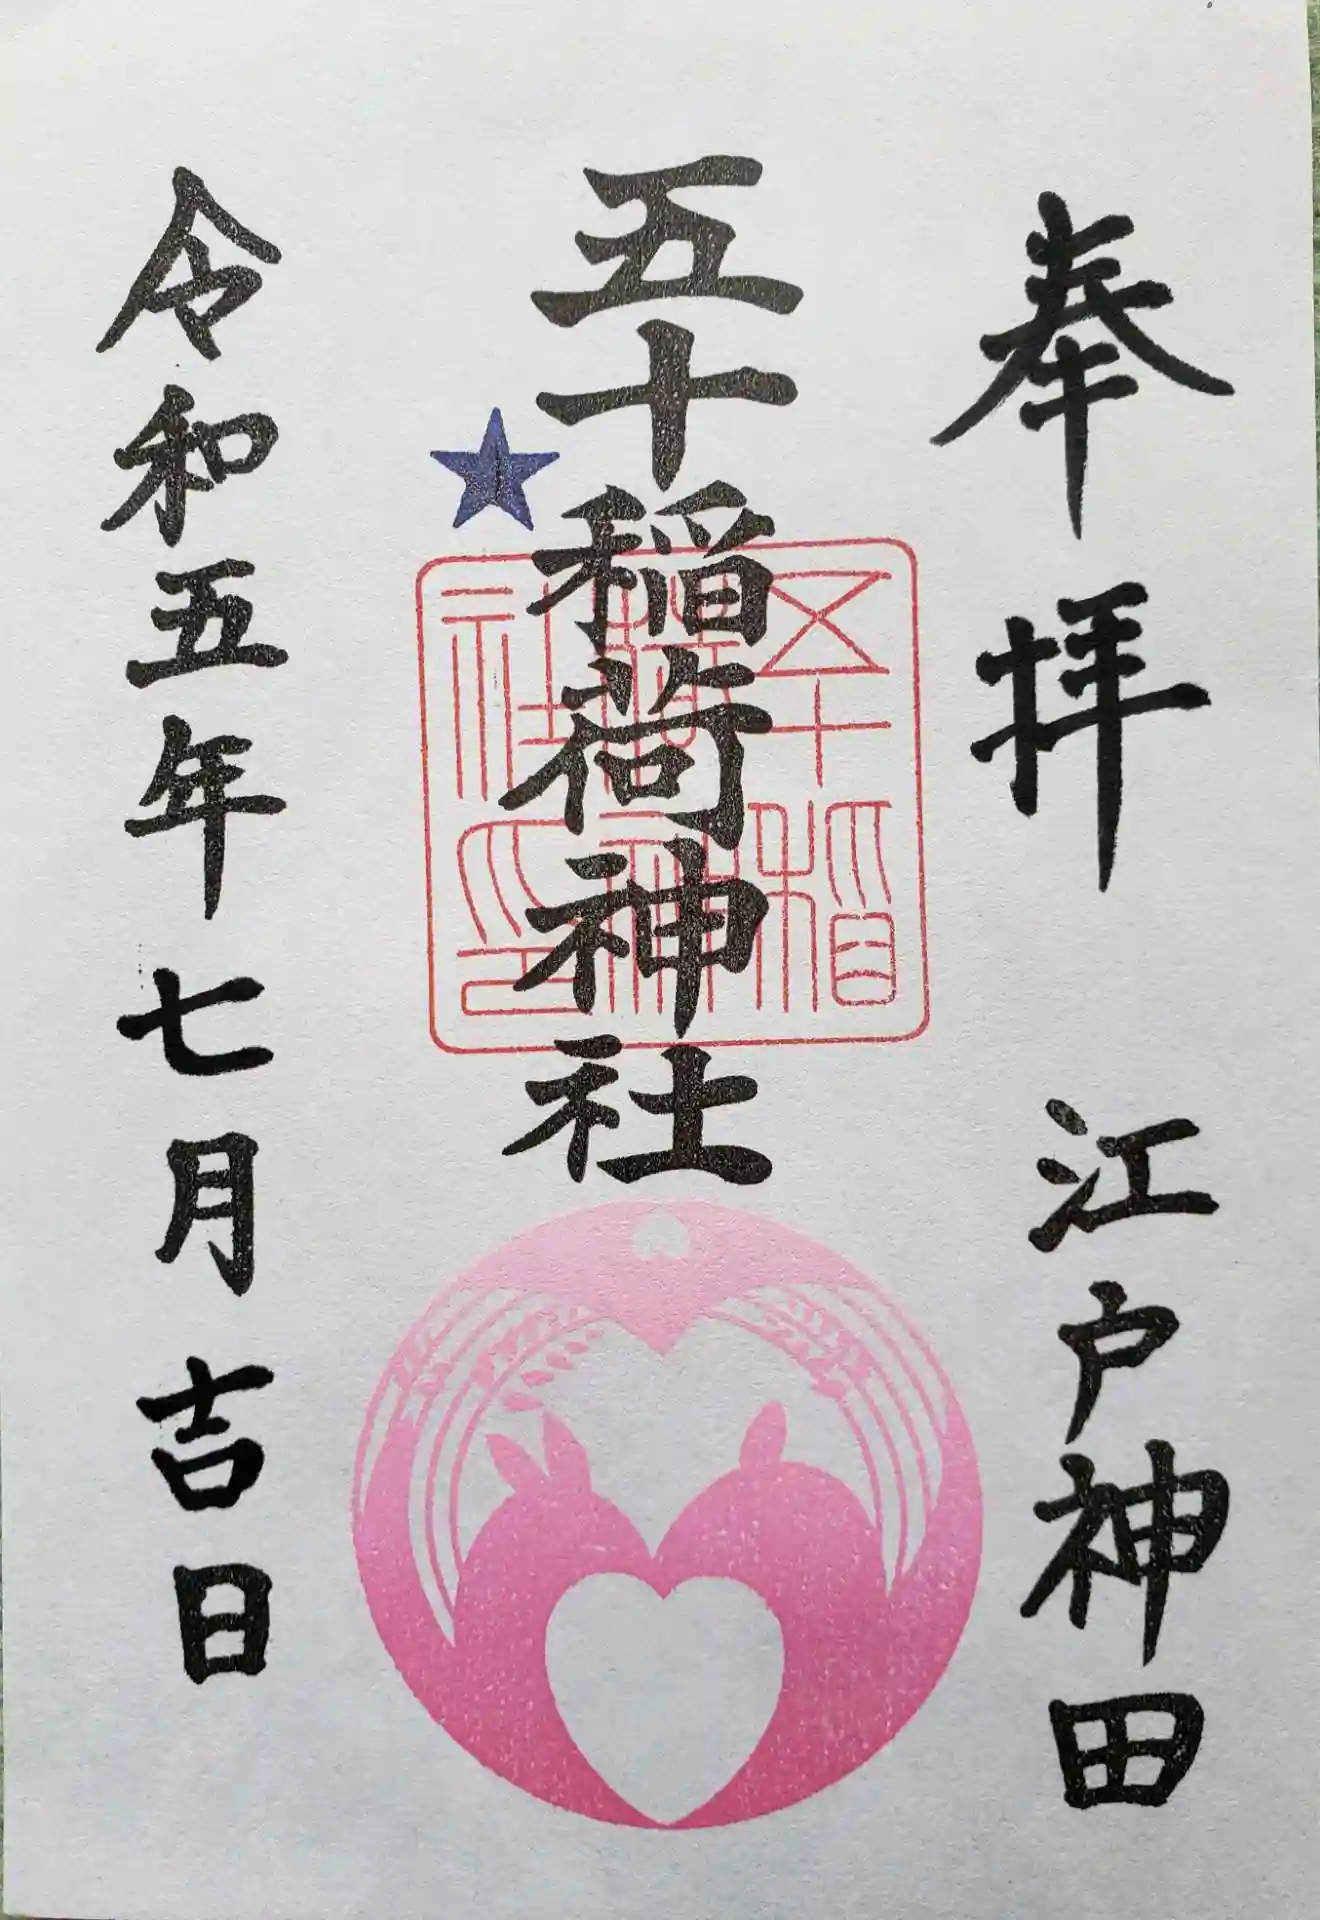 奉拝 江戸神田
五十稲荷神社
五十稲荷神社印
令和五年七月吉日